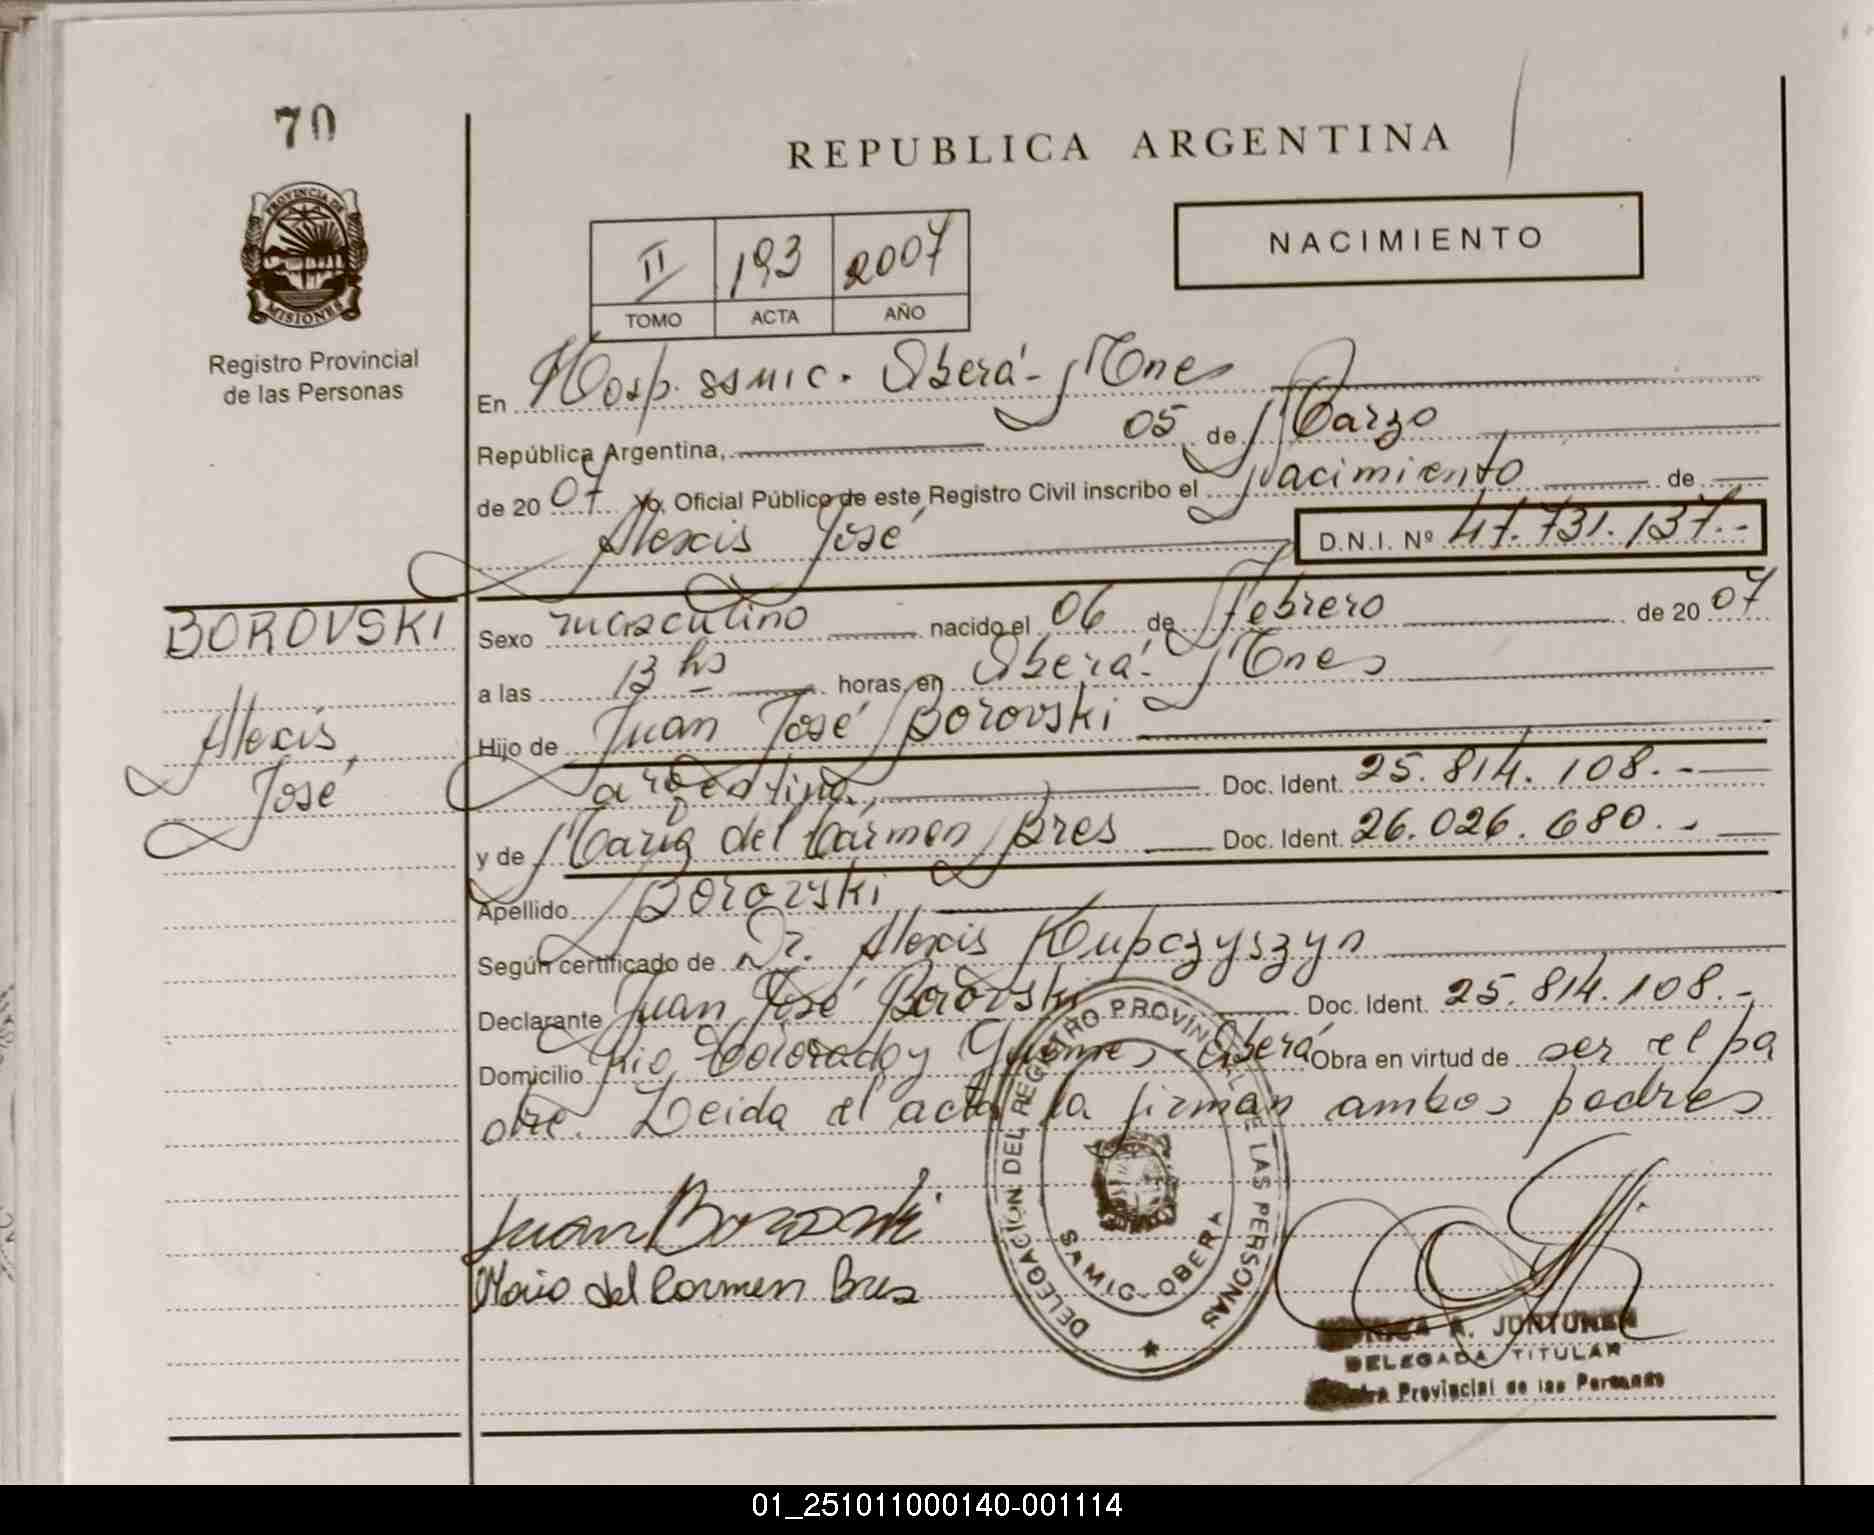 70
REPUBLICA ARGENTINA
NACIMIENTO
II 193 2007
TOMO ACTA AÑO
PROVINCIA DE
MISIONES
Registro Provincial
de las Personas
En Hosp. SSMIC. Oberá - Mnes
República Argentina, 05 de Marzo
de 2007 Yo, Oficial Público de este Registro Civil inscribo el Nacimiento de
Alexis José D.N.I. Nº 47.731.137.-
BOROVSKI
Alexis
José
Sexo masculino nacido el 06 de Febrero de 2007
a las 13 hs horas, en Oberá - Mnes
Hijo de Juan José Borovski
argentino Doc. Ident. 25.814.108.-
y de María del Cármen Bres Doc. Ident. 26.026.680.-
Apellido Borovski
Según certificado de Dr. Alexis Kupczyszyn
Declarante Juan José Borovski Doc. Ident. 25.814.108.-
Domicilio Rio Colorado y Güemes - Oberá Obra en virtud de ser el pa
dre. Leida el acta la firman ambos padres
Juan Borovski
Maria del Carmen Bres
DELEGACION DEL REGISTRO PROVINCIAL DE LAS PERSONAS
SAMIC - OBERA
A. JUNTUNEN
DELEGADA TITULAR
Provincial de las Personas
01_251011000140-001114